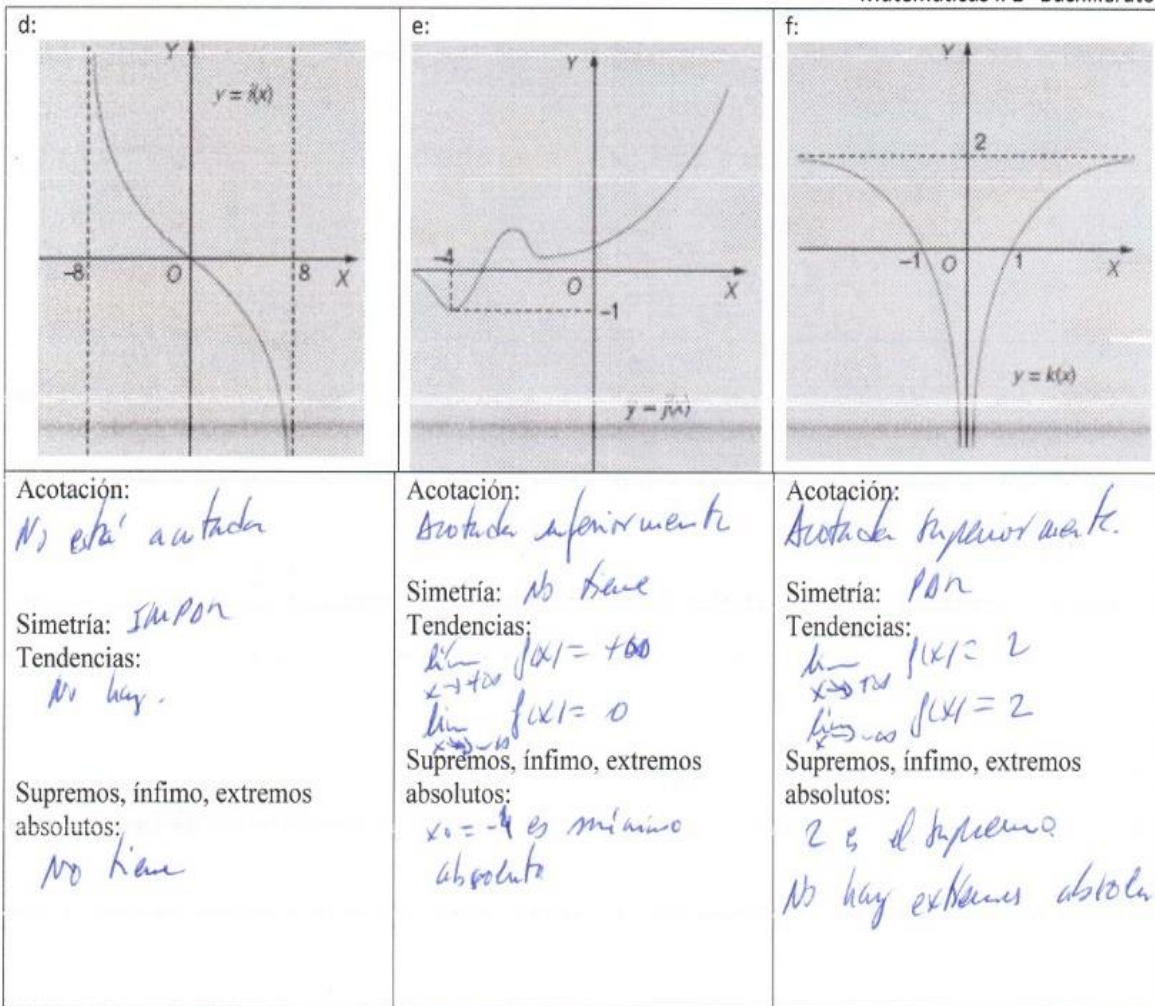 d:
Y
y = i(x)
-8
O
8
X
e:
Y
-4
O
X
-1
y = j(x)
f:
Y
2
-1
O
1
X
y = k(x)
Acotación:
No está acotada
Simetría: IMPAR
Tendencias:
No hay.
Supremos, ínfimo, extremos
absolutos:
No tiene
Acotación:
Acotada inferiormente
Simetría: No tiene
Tendencias:
lím f(x) = +∞
x→+∞
lím f(x) = 0
x→-∞
Supremos, ínfimo, extremos
absolutos:
x₀ = -4 es mínimo
absoluto
Acotación:
Acotada superiormente.
Simetría: PAR
Tendencias:
lím f(x) = 2
x→+∞
lím f(x) = 2
x→-∞
Supremos, ínfimo, extremos
absolutos:
2 es el supremo
No hay extremos